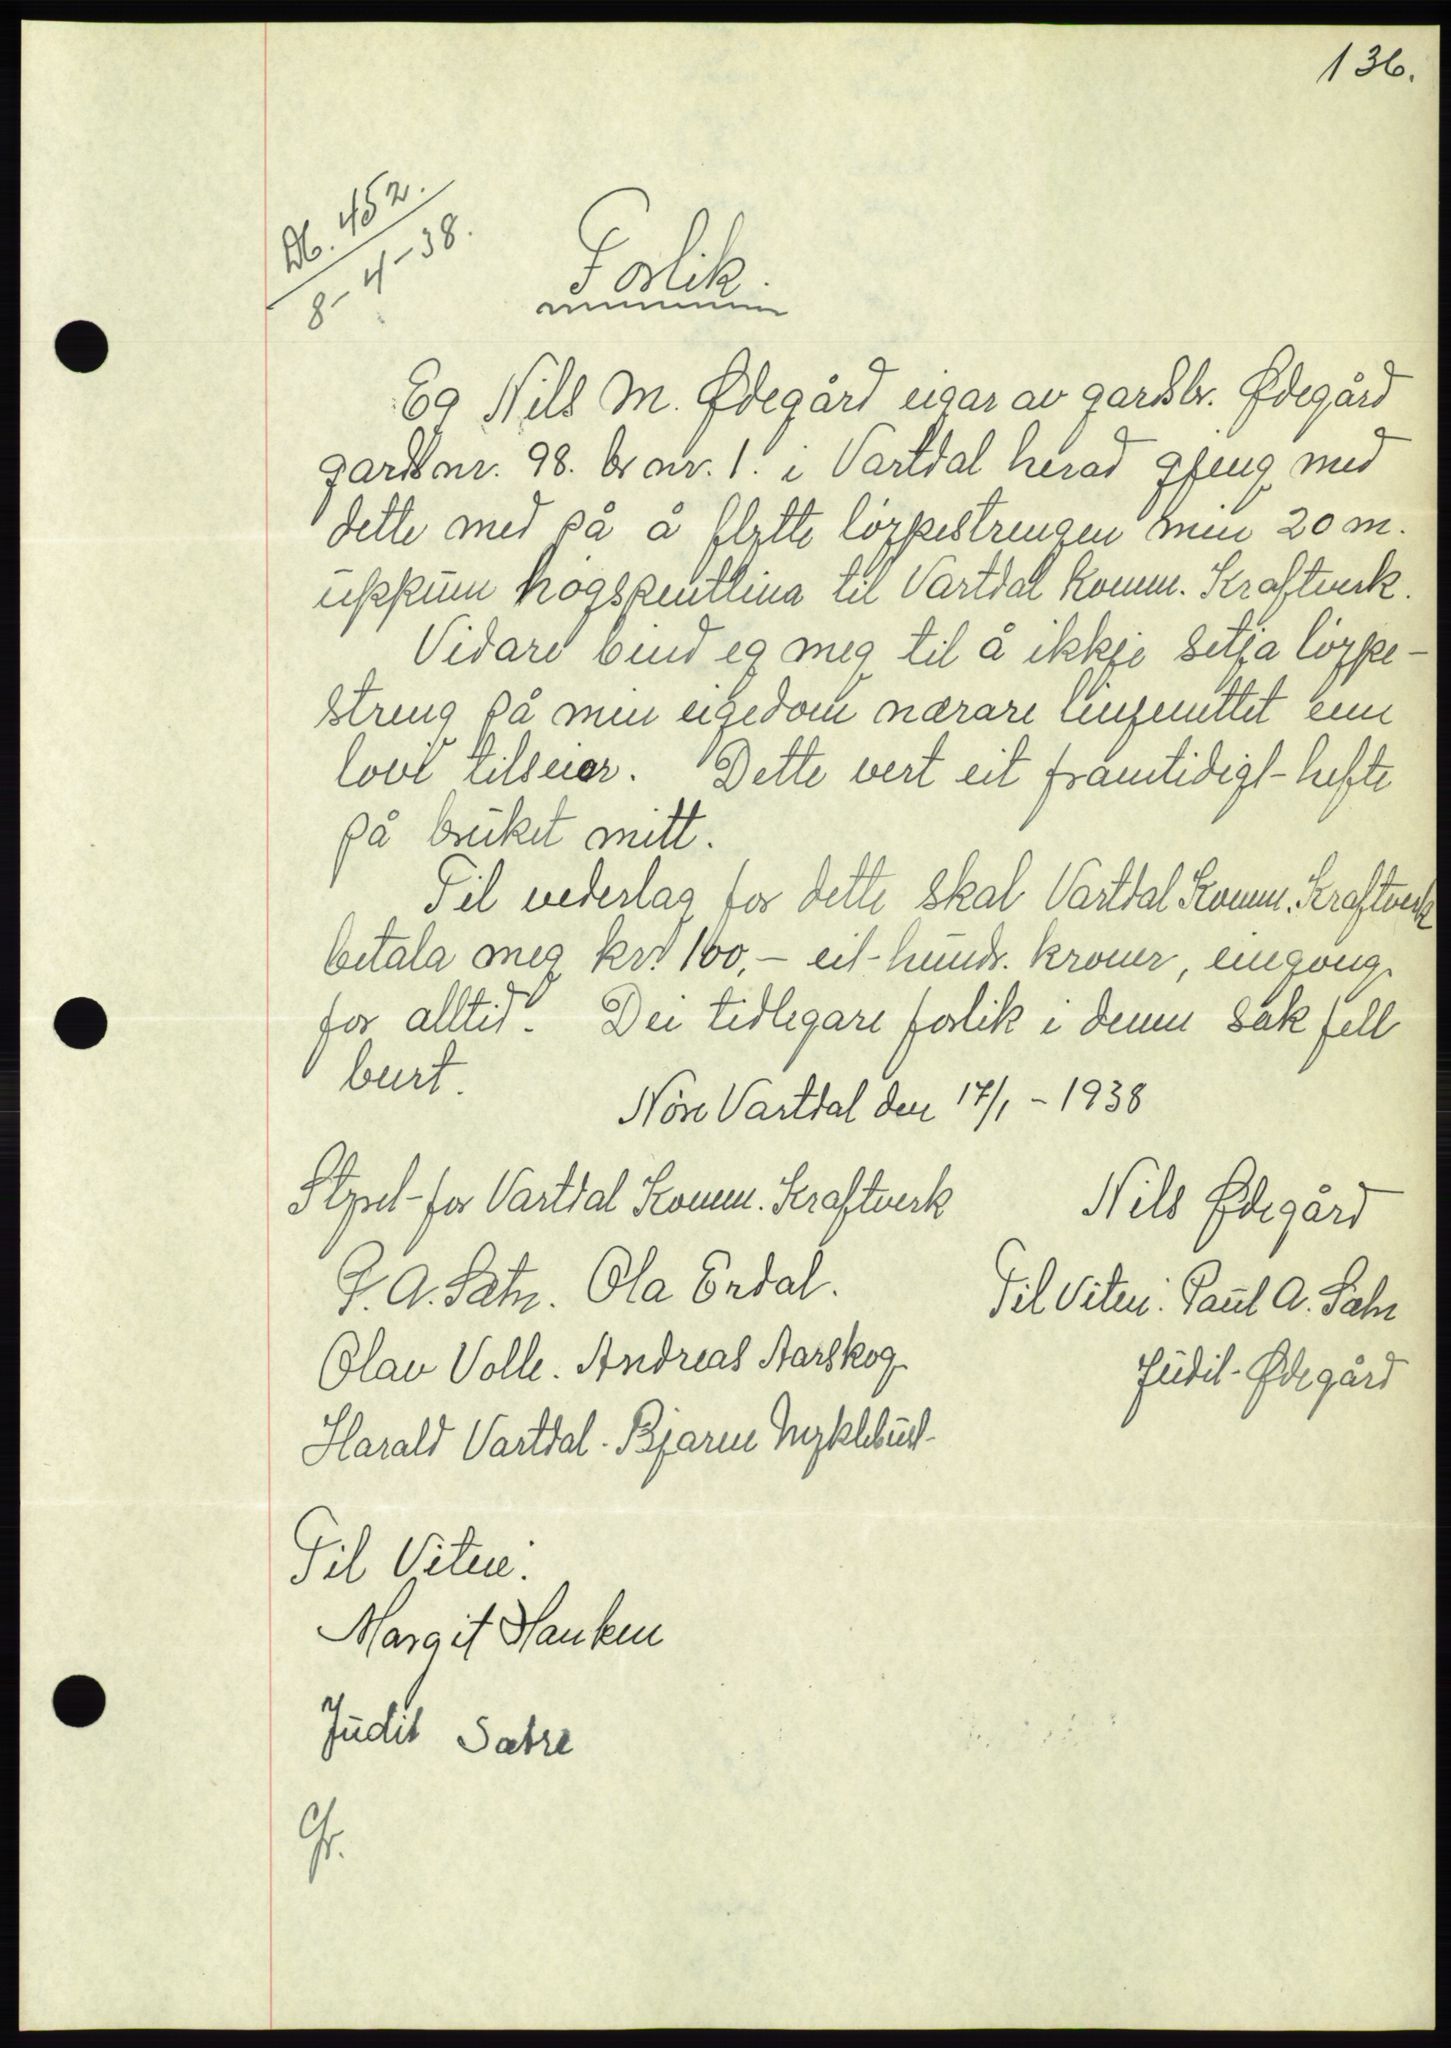 136.
Db. 452.
8-4-38.
Forlik.
Eg Nils M. Ødegård eigar av gardsbr. Ødegård
gardsnr. 98. br nr. 1. i Vartdal herad gjeng med
dette med på å flytte löypestrengen min 20 m.
uppum högspentlina til Vartdal Komm. Kraftverk.
Vidare bind eg meg til å ikkje setja löype-
streng på min eigedom nærare linjenettet enn
lovi tilseier. Dette vert eit framtidigt hefte
på bruket mitt.
Til vederlag for dette skal Vartdal Komm. Kraftverk
betala meg kr. 100,- eit hundr. kroner, eingong
for alltid. Dei tidlegare forlik i denne sak fell
burt.
Nöre Vartdal den 17/1 - 1938
Styret for Vartdal Komm. Kraftverk
Nils Ødegård
P. A. Sætre. Ola Erdal.
Til Vitne: Paul A. Sætre
Olav Volle. Andreas Aarskog
Judit Ødegård
Harald Vartdal. Bjarne Myklebust
Til Vitne:
Margit Hauken
Judit Sætre